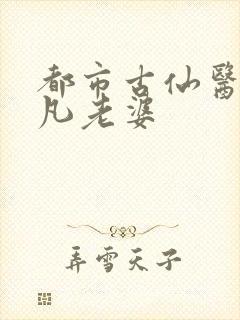 都市古仙醫
凡老婆
弄雪天子